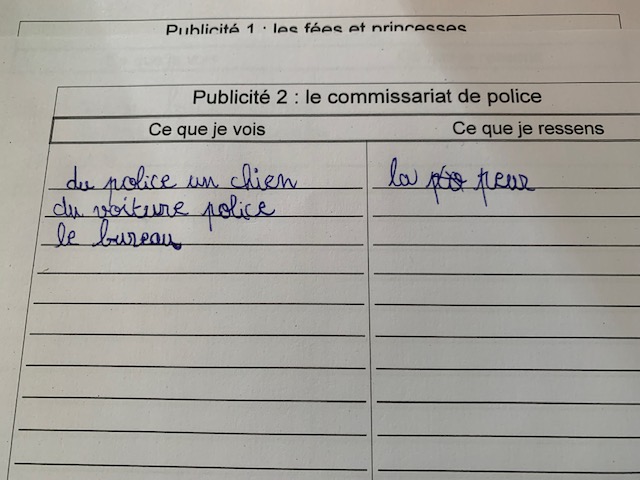 Publicité 1 : les fées et princesses
Publicité 2 : le commissariat de police
Ce que je vois
Ce que je ressens
du police un chien
la peur
du voiture police
le bureau